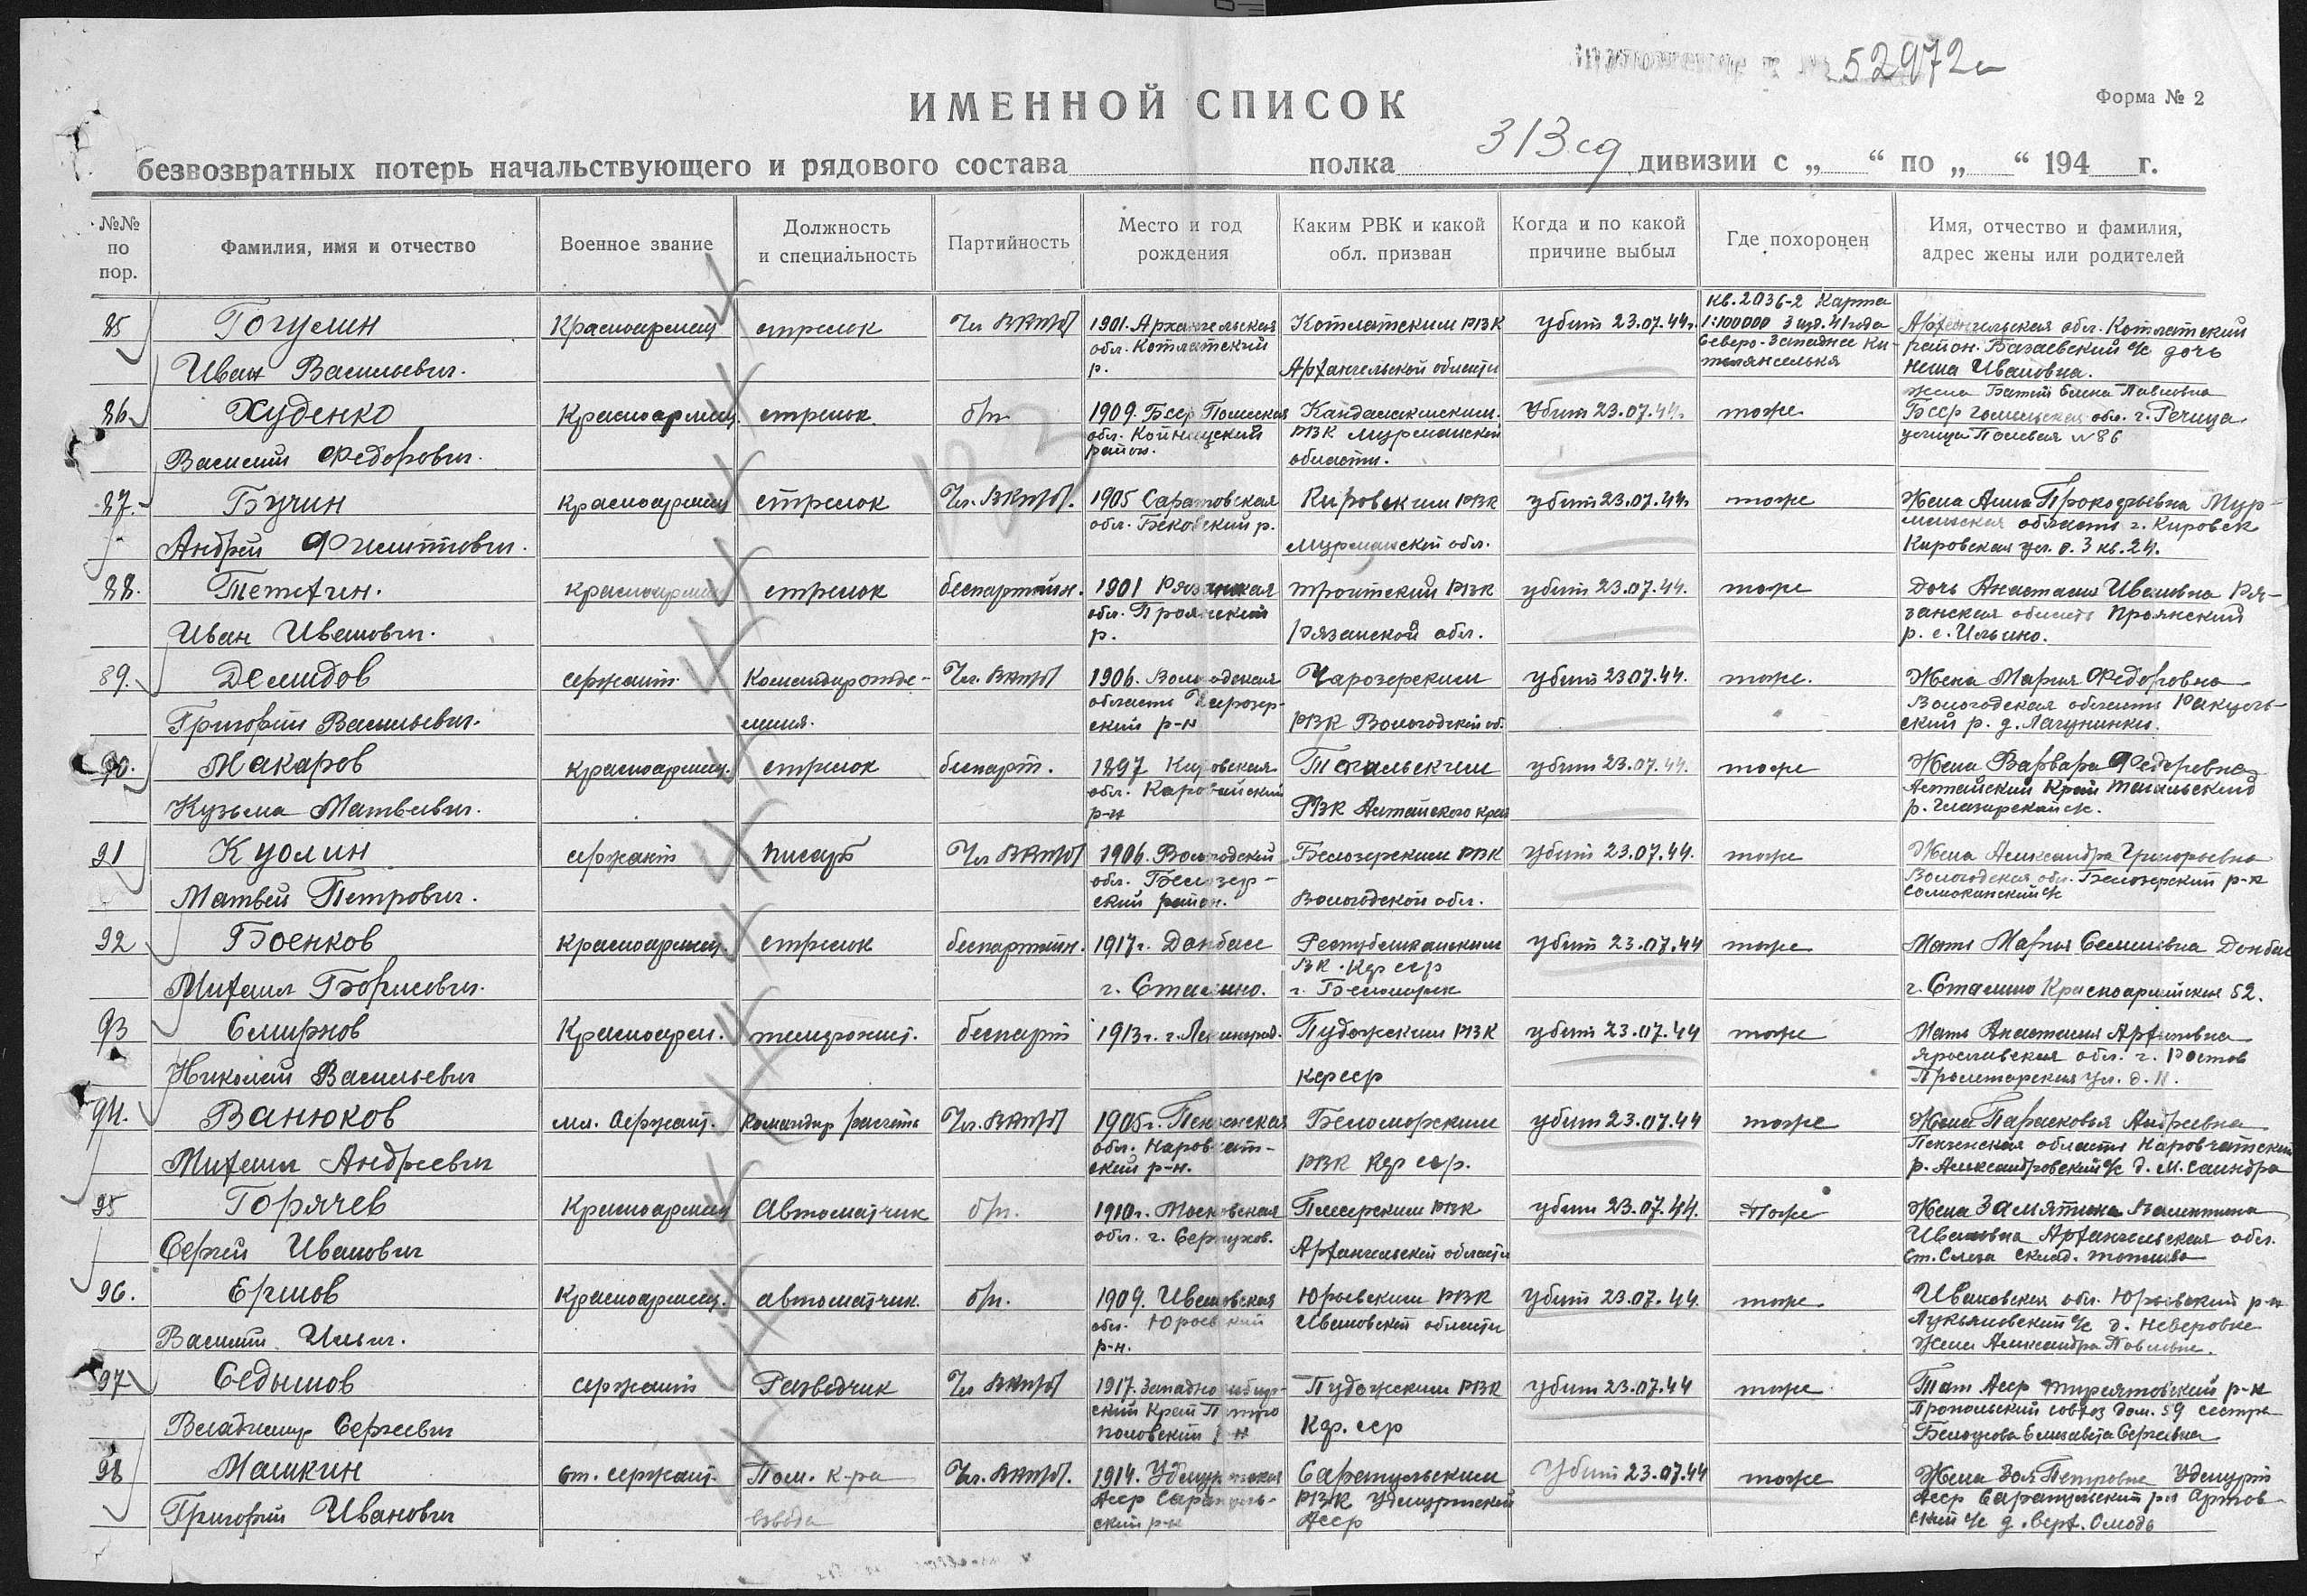 52972с
ИМЕННОЙ СПИСОК
Форма № 2
безвозвратных потерь начальствующего и рядового состава полка 313 сд дивизии с „ “ по „ “ 194 г.
№№ по пор.
Фамилия, имя и отчество
Военное звание
Должность и специальность
Партийность
Место и год рождения
Каким РВК и какой обл. призван
Когда и по какой причине выбыл
Где похоронен
Имя, отчество и фамилия, адрес жены или родителей
85 Гогулин Красноармеец стрелок Чл ВКП(б) 1901. Архангельская Котласским РВК убит 23.07.44г. кв. 2036-2 Карта
1:100000 изд. 41 года Архангельская обл. Котласский
обл. Котласский Северо-Западнее район. дочь
Иван Васильевич. р. Архангельской области Ивановна.
86 Худенко Красноармеец. стрелок. б/п 1909. Бсср Кандалакшским. Убит 23.07.44г. тоже Бсср Гомельская обл. г. Речица
обл. РВК Мурманской улица Полевая №86
Василий Федорович. район. области.
87. Бучин Красноармеец стрелок Чл. ВКП(б). 1905 Саратовская Кировским РВК убит 23.07.44. тоже Жена Анна Прокофьевна Мур-
обл. Бековский р. манская область г. Кировск
Андрей Филиппович. Мурманской обл. Кировская ул. д. 3 кв. 24.
88. Тетехин. красноармеец стрелок беспартийн. 1901 Рязанская РВК убит 23.07.44. тоже Дочь Анастасия Ивановна Ря-
обл. занская область
Иван Иванович. р. Рязанской обл. р. с. Ильино.
89. Демидов сержант Командир отде- Чл. ВКП(б) 1906. Вологодская Чарозерским убит 23.07.44. тоже. Жена Мария Федоровна
ления. область Чарозер- Вологодская область
Григорий Васильевич. ский р-н РВК Вологодской об. ский р. д.
90. Макаров красноармеец. стрелок беспарт. 1897 Кировская убит 23.07.44. тоже Жена Варвара Федоровна
обл. Алтайский Край
Кузьма Матвеевич. р-н РВК Алтайского края р.
91 Куолин сержант писарь Чл ВКП(б) 1906. Вологодский Белозерским РВК убит 23.07.44. тоже Жена Александра Григорьевна
обл. Белозер- Вологодская обл. Белозерский р-н
Матвей Петрович. ский район. Вологодской обл. с/с
92 Боенков Красноармеец. стрелок беспартийн. 1917г. Донбасс Республиканским убит 23.07.44 тоже Мать Мария Донбас
ВК. Кфсср
Михаил Борисович. г. Сталино. г. Беломорск г. Сталино Красноармейская 52.
93 Смирнов Красноарм. беспарт 1913г. г. Ленинград. Пудожским РВК убит 23.07.44 тоже Мать Анастасия
Ярославская обл. г. Ростов
Николай Васильевич Кфсср Пролетарская ул. д. 11.
94. Ванюков мл. Сержант. Командир расчета Чл. ВКП(б) 1905г. Пензенская Беломорским убит 23.07.44 тоже Жена Парасковья Андреевна
обл. Наровчат- Пензенская область Наровчатский
Михаил Андреевич ский р-н. РВК Кфсср. р. Александровский с/с д.
95 Горячев Красноармеец Автоматчик б/п. 1910г. Московская РВК убит 23.07.44. тоже Жена Замятина Валентина
обл. г. Серпухов. Ивановна Архангельская обл.
Сергей Иванович Архангельской области
96. Ершов Красноармеец. автоматчик. б/п. 1909. Ивановская Юрьевским РВК Убит 23.07.44. тоже Ивановская обл. Юрьевский р-н
обл. Юрьевский Ивановской области Лукьяновский с/с д. Неверовке
Василий Ильич. р-н. Жена Александра Павловна.
97 Седышов сержант Разведчик Чл ВКП(б) 1917. Западносибир- Пудожским РВК убит 23.07.44 тоже Тат Асср р-н
ский Край совхоз дом. 59 сестра
Владимир Сергеевич Кфсср Елизавета Сергеевна
98 Машкин ст. сержант. Пом. к-ра Чл. ВКП(б). 1914. Удмуртская Сарапульским Убит 23.07.44 тоже Жена Зоя Петровна Удмурт
взвода Асср Сарапуль- РВК Удмуртской Асср Сарапульский р-н
Григорий Иванович ский р-н Асср ский с/с д.